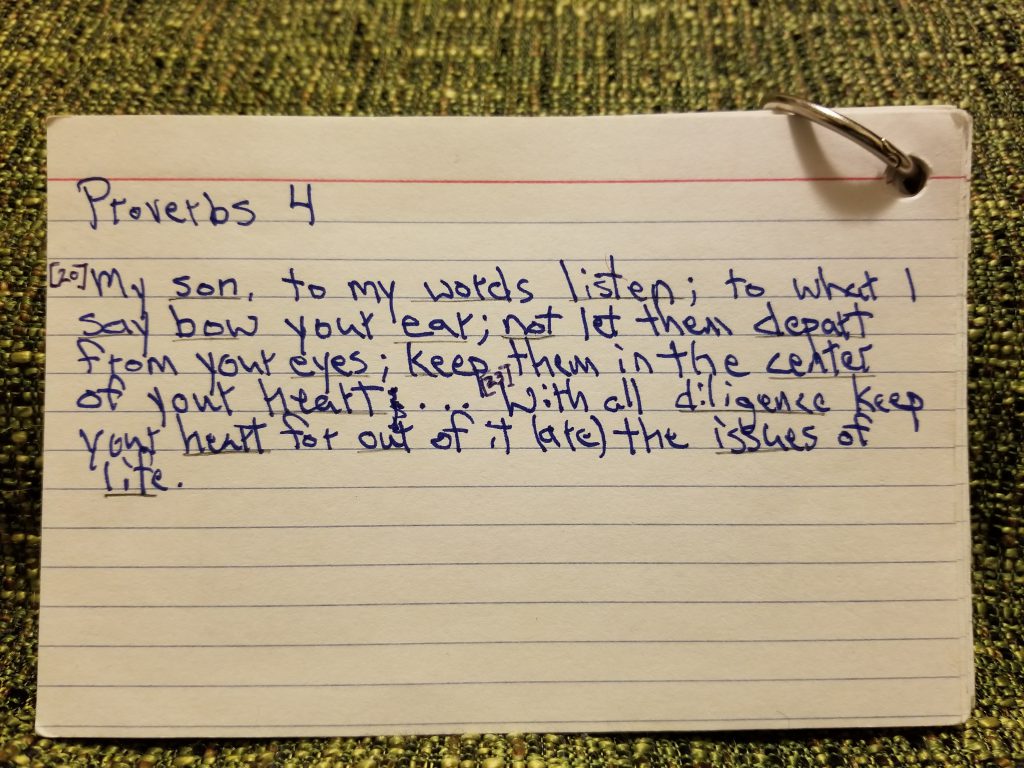 Proverbs 4
[20] My son, to my words listen; to what I
say bow your ear; not let them depart
from your eyes; keep them in the center
of your heart ... [23] With all diligence keep
your heart for out of it (are) the issues of
life.